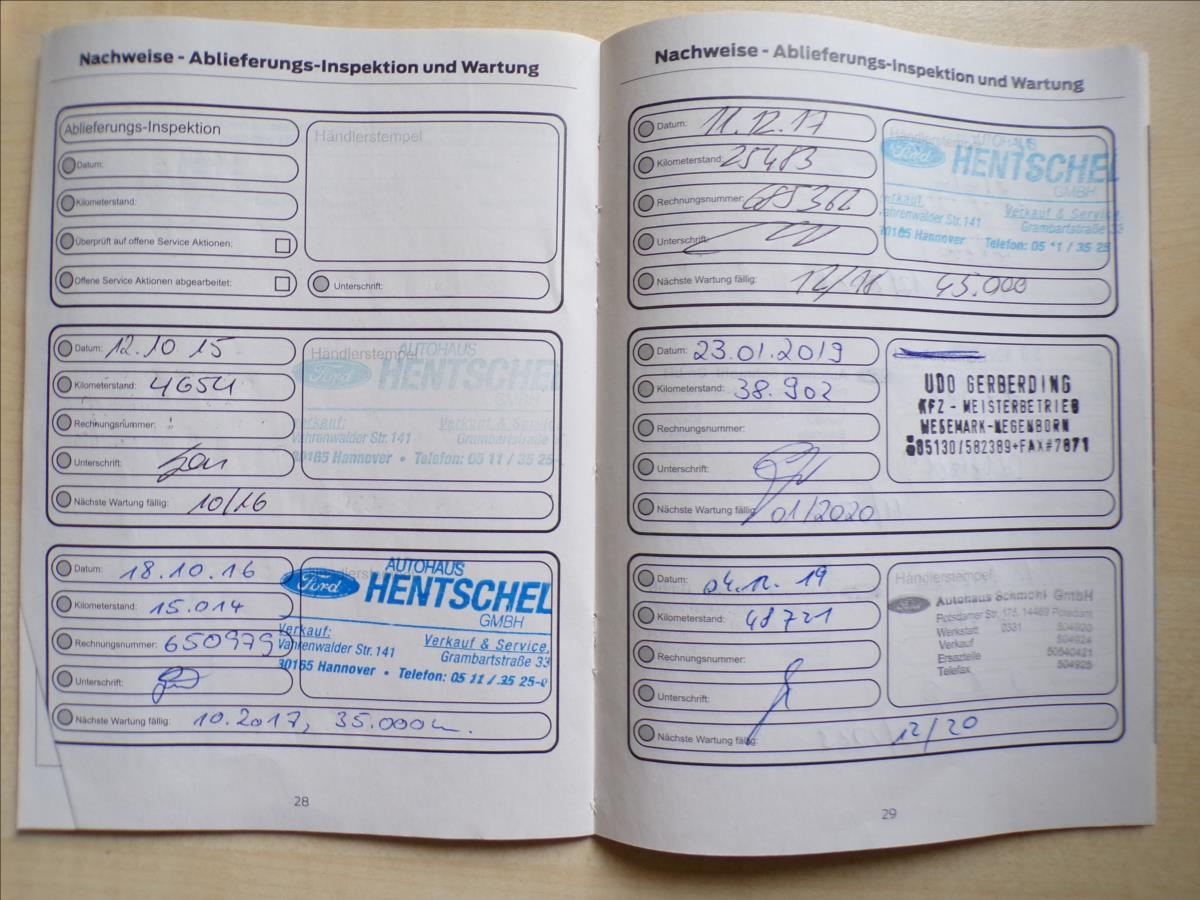 Nachweise - Ablieferungs-Inspektion und Wartung
Ablieferungs-Inspektion
Händlerstempel
Datum:
Kilometerstand:
Überprüft auf offene Service Aktionen:
Offene Service Aktionen abgearbeitet:
Unterschrift:
Datum: 12.10 15
Kilometerstand: 4654
Rechnungsnummer:
Unterschrift:
Nächste Wartung fällig: 10/16
Händlerstempel
AUTOHAUS
Ford HENTSCHEL
GMBH
Verkauf: Verkauf & Service
Vahrenwalder Str. 141 Grambartstraße
30165 Hannover • Telefon: 05 11 / 35 25-
Datum: 18.10.16
Kilometerstand: 15.014
Rechnungsnummer: 650979
Unterschrift:
Nächste Wartung fällig: 10.2017, 35.000
AUTOHAUS
Ford HENTSCHEL
GMBH
Verkauf: Verkauf & Service.
Vahrenwalder Str. 141 Grambartstraße 33
30165 Hannover • Telefon: 05 11 / 35 25-
28
Nachweise - Ablieferungs-Inspektion und Wartung
Datum: 11.12.17
Kilometerstand: 25483
Rechnungsnummer: 685362
Unterschrift:
Nächste Wartung fällig: 12/18 45.000
AUTOHAUS
Ford HENTSCHEL
GMBH
erkauf: Verkauf & Service.
ahrenwalder Str. 141 Grambartstraße 33
30165 Hannover Telefon: 05 11 / 35 25
Datum: 23.01.2019
Kilometerstand: 38.902
Rechnungsnummer:
Unterschrift:
Nächste Wartung fällig: 01/2020
UDO GERBERDING
KFZ - MEISTERBETRIEB
WEDEMARK-WEGENBORN
05130/582389+FAX#7871
Datum: 04.12. 19
Kilometerstand: 48721
Rechnungsnummer:
Unterschrift:
Nächste Wartung fällig: 12/20
Händlerstempel
Ford Autohaus Schmohl GmbH
Potsdamer Str. 175, 14469 Potsdam
Werkstatt 0331 504920
Verkauf 504924
Ersatzteile 50540421
Telefax 504925
29